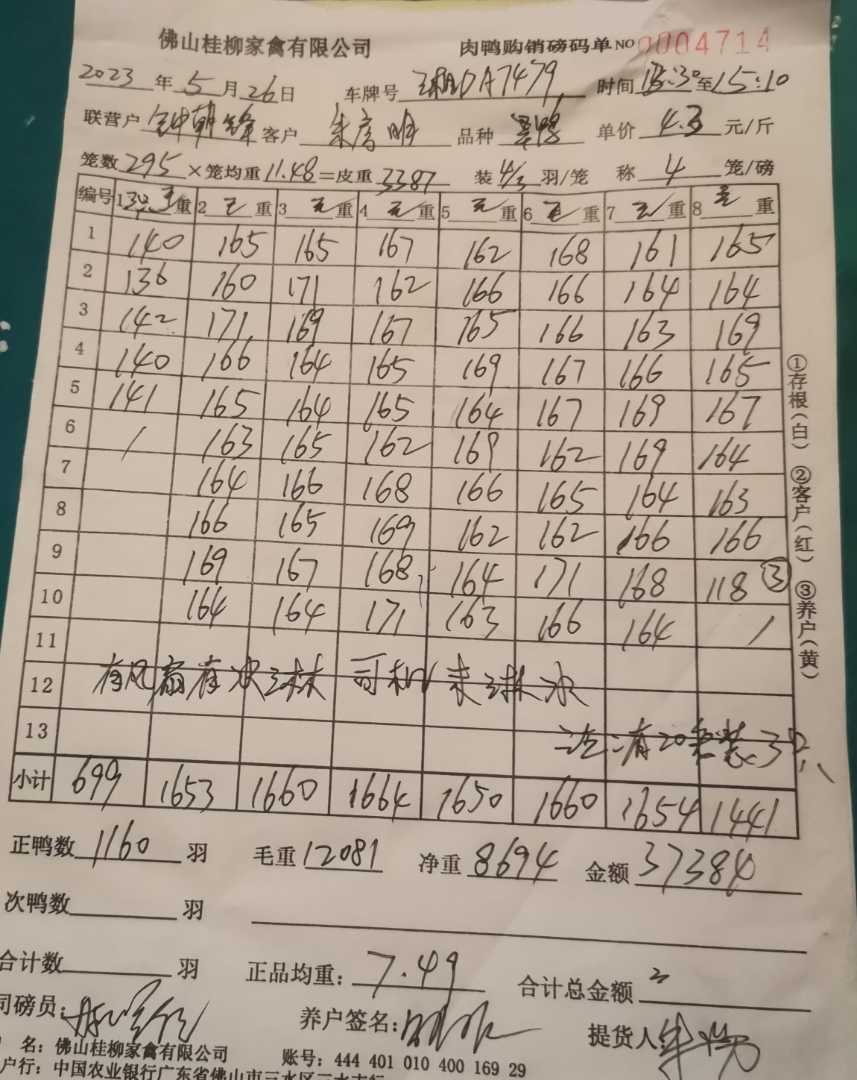 佛山桂柳家禽有限公司 肉鸭购销磅码单 NO 0004714
2023年5月26日 车牌号 DA7479 时间 13:30至15:10
联营户 钟朝锋 客户 品种 单价 4.3 元/斤
笼数 295 ×笼均重 11.48 =皮重 3387 装 4/3 羽/笼 称 4 笼/磅
编号 1 重 2 重 3 重 4 重 5 重 6 重 7 重 8 重
1 140 165 165 167 162 168 161 165
2 136 160 171 162 166 166 164 164
3 142 171 169 167 165 166 163 169
4 140 166 164 165 169 167 166 165
5 141 165 164 165 164 167 169 167
6 / 163 165 162 169 162 169 164
7 164 166 168 166 165 164 163
8 166 165 169 162 162 166 166
9 169 167 168 164 171 168 118 ③
10 164 164 171 163 166 164 /
11
12 有风扇有水 司机 未 水
13 有20 装3只
小计 699 1653 1660 1664 1650 1660 1654 1441
正鸭数 1160 羽 毛重 12081 净重 8694 金额 37384
次鸭数 羽
合计数 羽 正品均重: 7.49 合计总金额
司磅员: 养户签名: 提货人:
名: 佛山桂柳家禽有限公司 账号: 444 401 010 400 169 29
户行: 中国农业银行广东省佛山市三水区三水支行
①存根(白) ②客户(红) ③养户(黄)